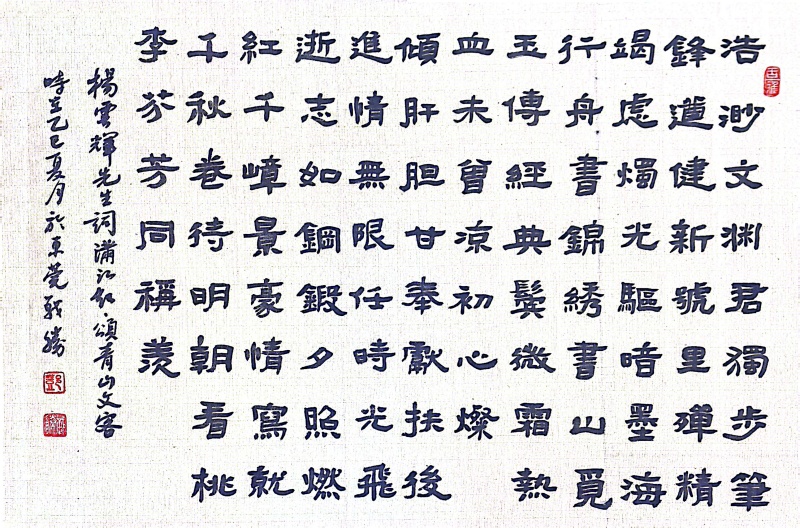 浩渺文渊君獨步筆
鋒遒健新號里殫精
竭慮燭光驅暗墨海
行舟書錦綉書山覓
玉傳經典鬓微霜熱
血未曾凉初心燦
傾肝胆甘奉獻扶後
進情無限任時光飛
逝志如鋼鍛夕照燃
紅千嶂景豪情寫就
千秋卷待明朝看桃
李芬芳同稱羨
楊雲輝先生詞滿江紅頌青山文客
時在乙巳夏月於東莞戰勝